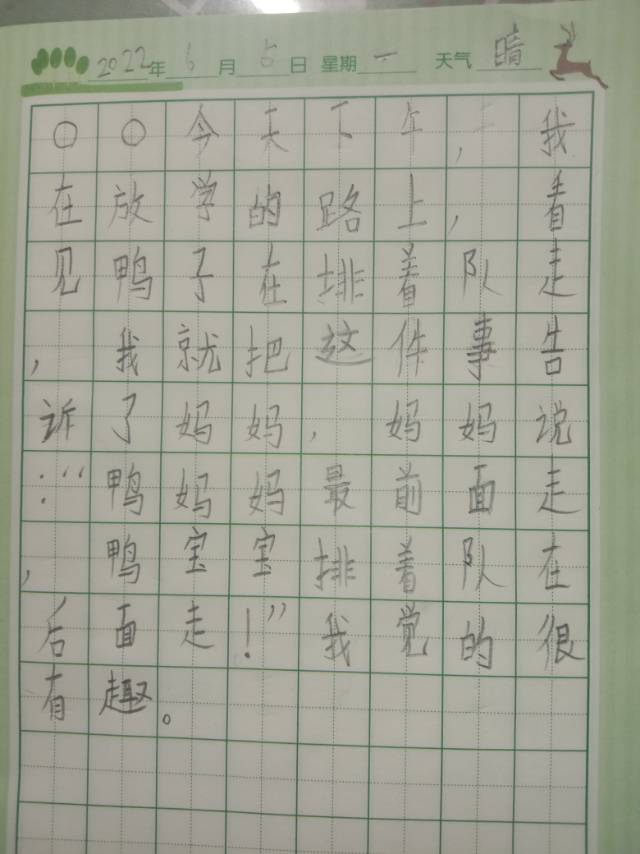 2022年6月5日 星期一 天气 晴
○○今天下午，我
在放学的路上，看
见鸭子在排着队走
，我就把这件事告
诉了妈妈，妈妈说
：“鸭妈妈最前面走
，鸭宝宝排着队在
后面走！”我觉的很
有趣。